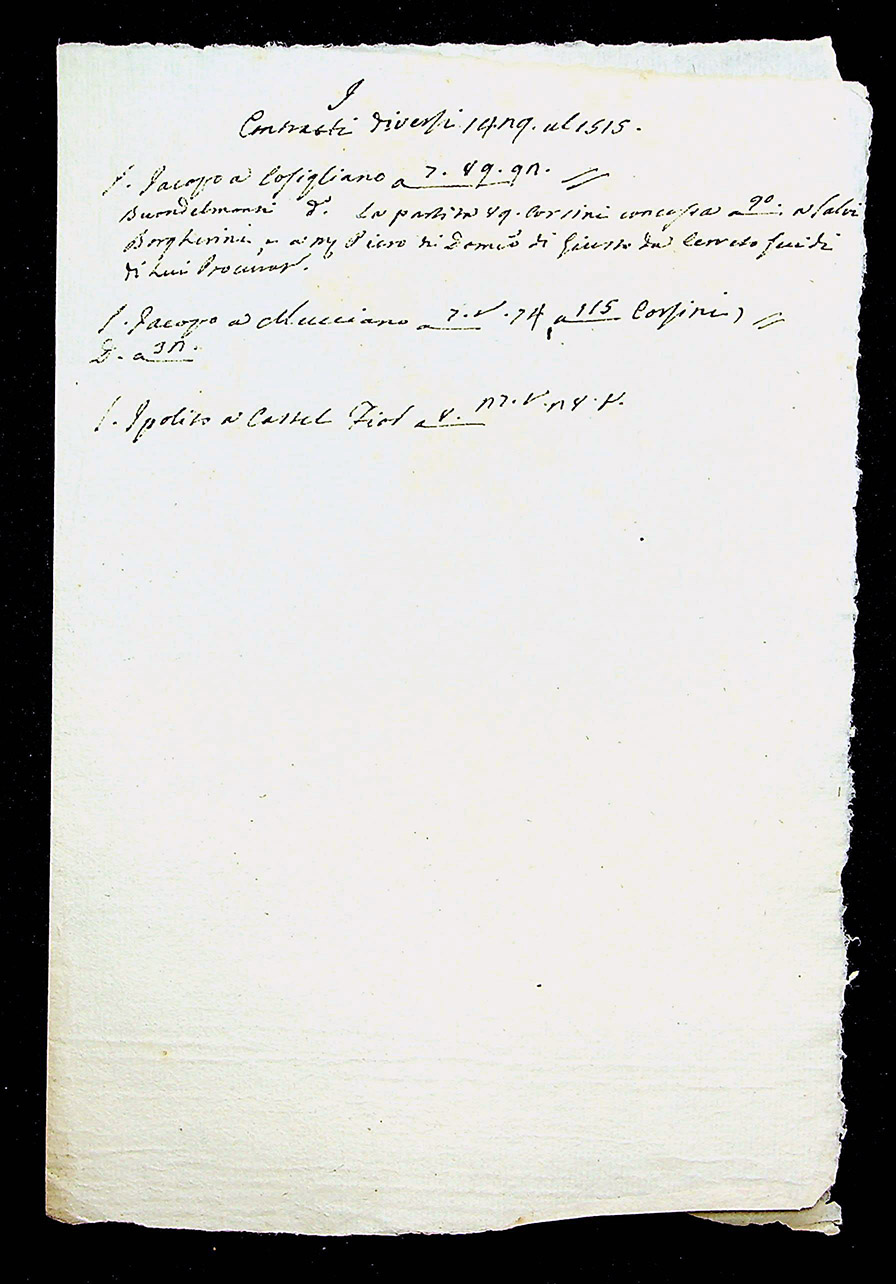 I
Contratti diversi 14 al 1515.
S. Jacopo a Cosigliano a 7. 89. 92. //
Buondelmonti d.º La partita 89. Corsini concessa a 90. a Salvi
Borgherini, e a Piero di di Giusto da Cerreto
di Lui Procurat.
S. Jacopo a Mucciano a 7. 74 a 115 Corsini) //
D. a
S. Ipolito a Castel Fior a 8.